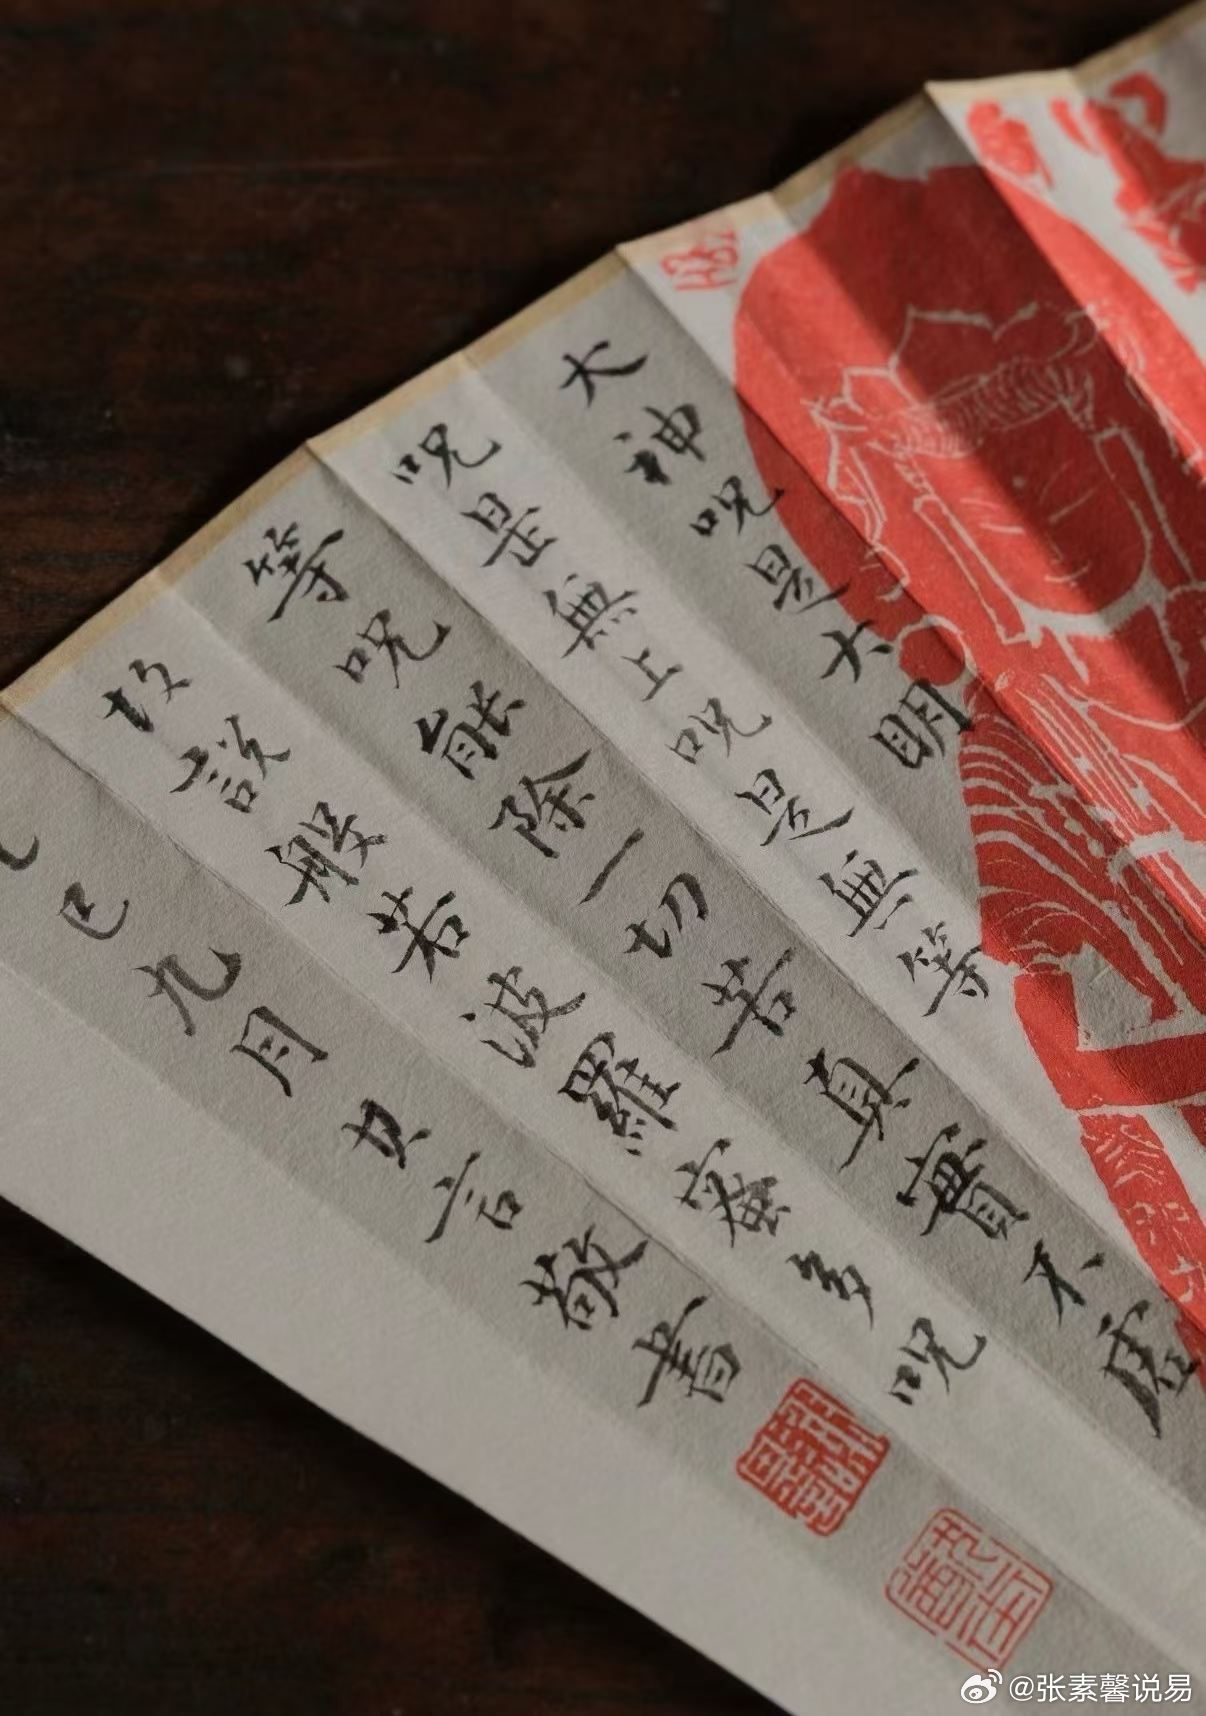 大神咒是大明
咒是無上咒是無等
等咒能除一切苦真實不虛
故説般若波羅蜜多咒
乙巳九月言敬書
@张素馨说易